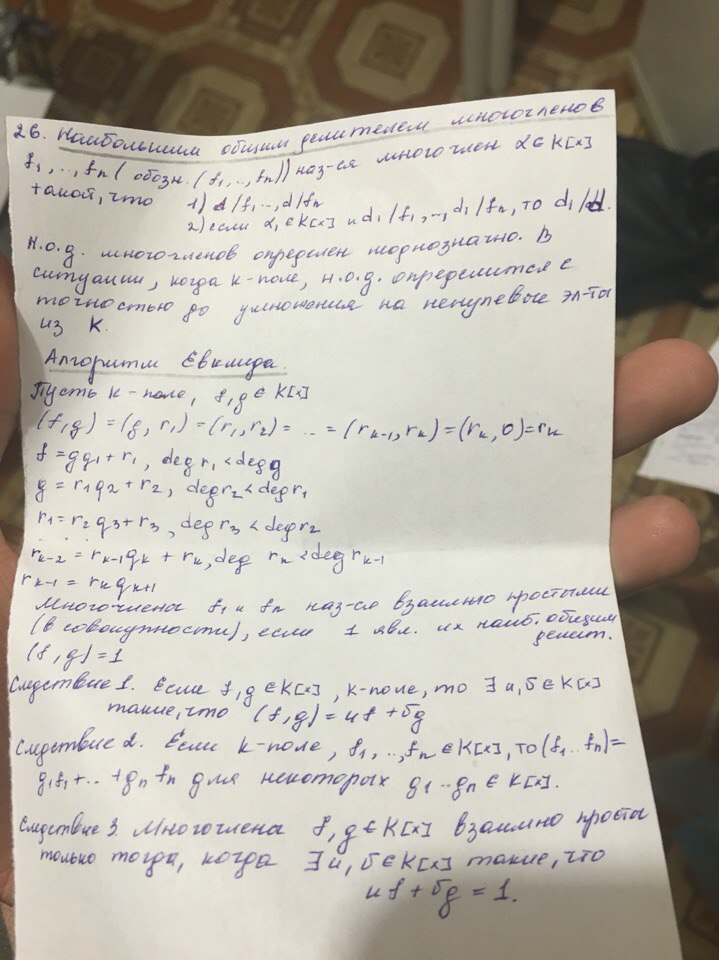 26. Наибольшим общим делителем многочленов
f₁,..,fₙ (обозн. (f₁,..,fₙ)) наз-ся многочлен d∈K[x]
такой, что 1) d/f₁..,d/fₙ
2) если d₁∈K[x] и d₁/f₁,..,d₁/fₙ, то d₁/d.
Н.о.д. многочленов определен неоднозначно. В
ситуации, когда k-поле, н.о.д. определится с
точностью до умножения на ненулевые эл-ты
из K.
Алгоритм Евклида.
Пусть k-поле, f,g∈K[x]
(f,g)=(g,r₁)=(r₁,r₂)=..=(rₖ₋₁,rₖ)=(rₖ,0)=rₖ
f=gq₁+r₁, deg r₁<deg g
g=r₁q₂+r₂, deg r₂<deg r₁
r₁=r₂q₃+r₃, deg r₃<deg r₂
rₖ₋₂=rₖ₋₁qₖ+rₖ, deg rₖ<deg rₖ₋₁
rₖ₋₁=rₖqₖ₊₁
Многочлены f₁ и fₙ наз-ся взаимно простыми
(в совокупности), если 1 явл. их наиб. общим
делит.
(f,g)=1
Следствие 1. Если f,g∈K[x], k-поле, то ∃u,v∈K[x]
такие, что (f,g)=uf+vg
Следствие 2. Если k-поле, f₁,..,fₙ∈K[x], то (f₁..fₙ)=
g₁f₁+..+gₙfₙ для некоторых g₁..gₙ∈K[x].
Следствие 3. Многочлена f,g∈K[x] взаимно просты
только тогда, когда ∃u,v∈K[x] такие, что
uf+vg=1.